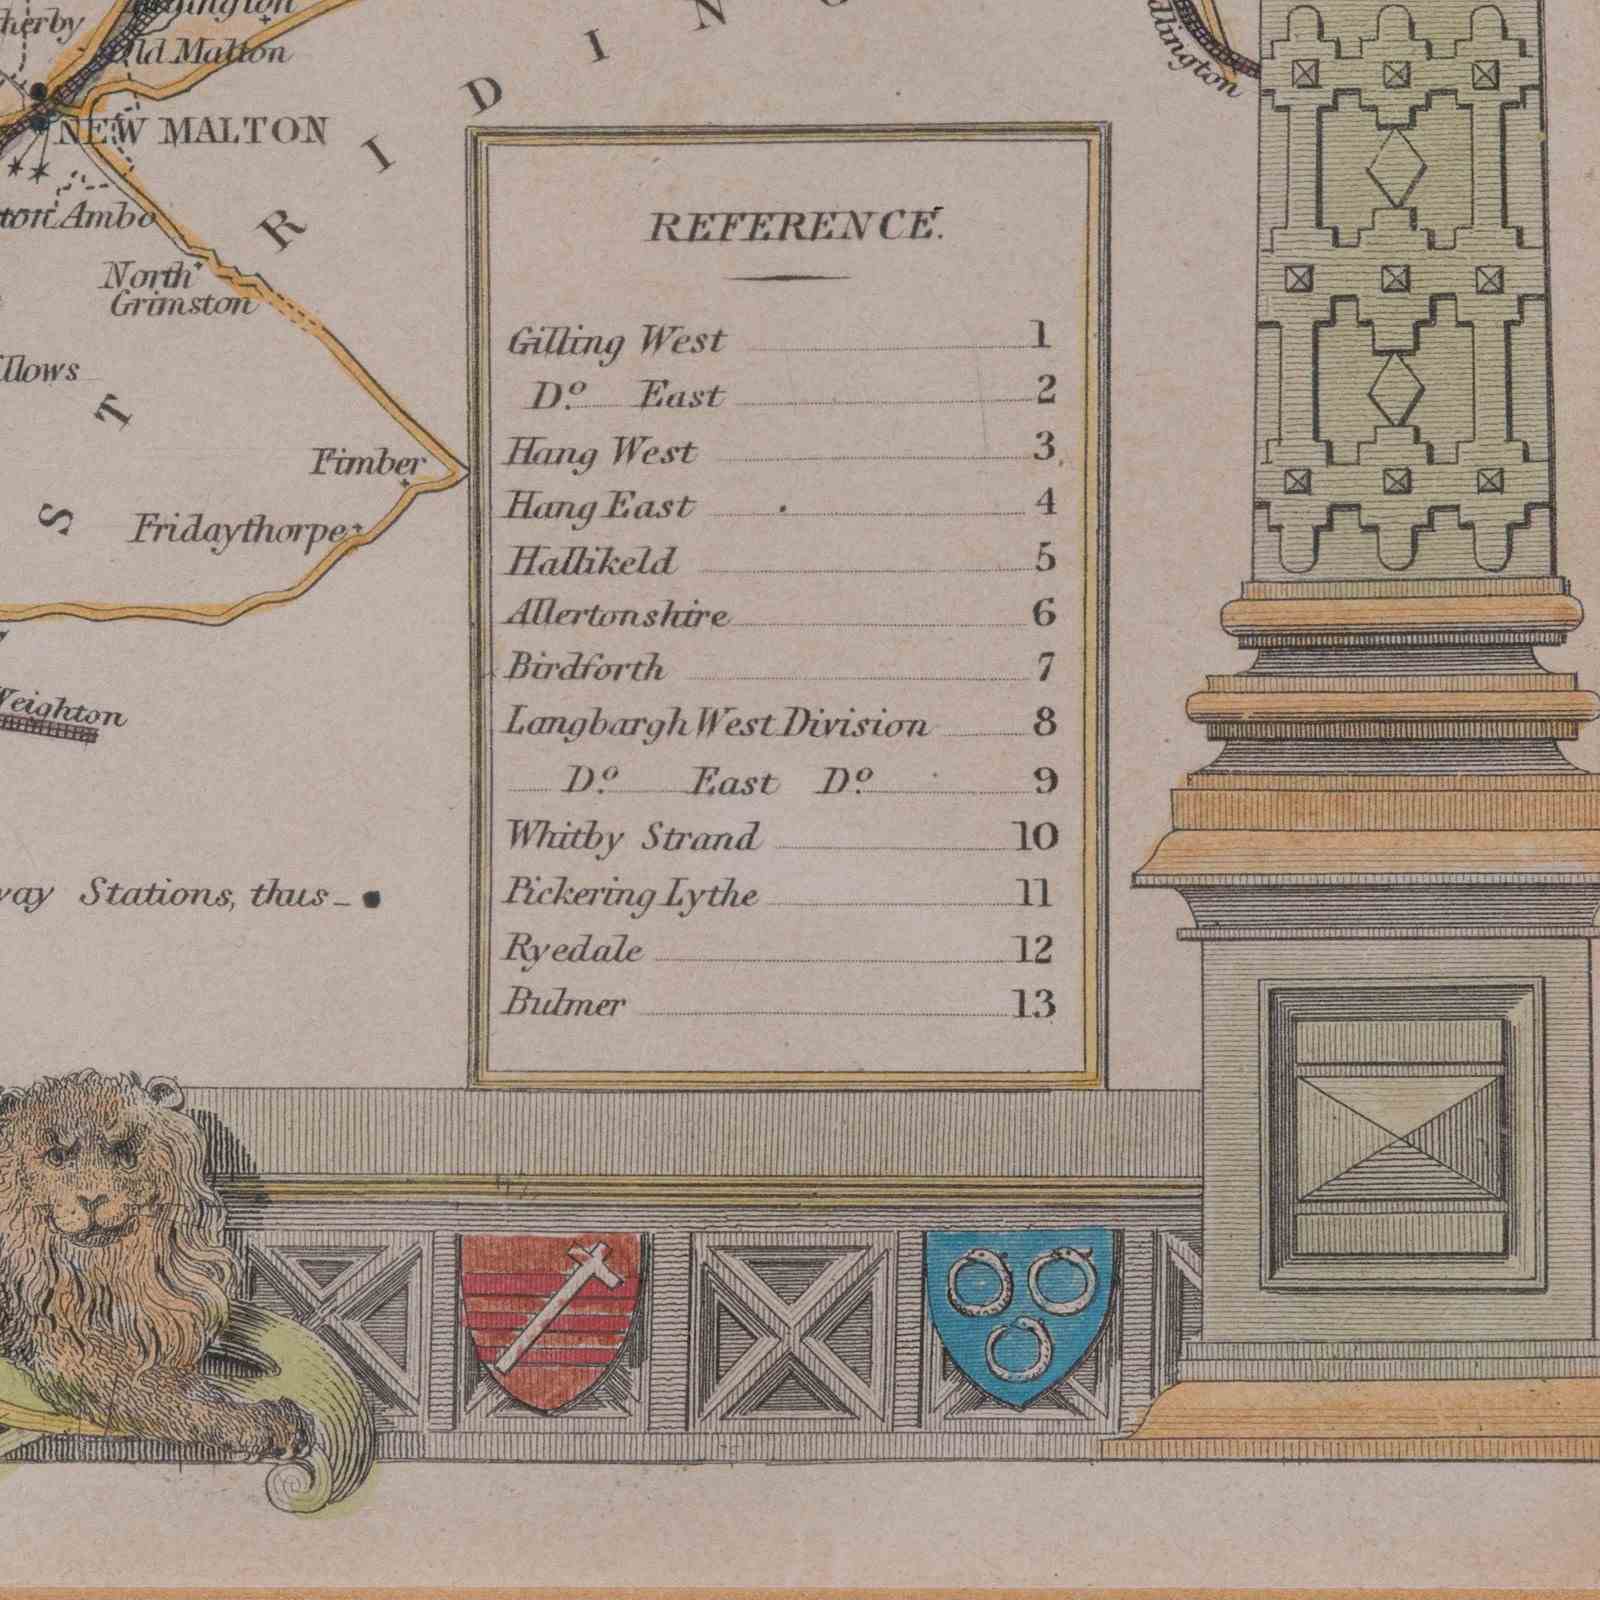 Old Malton
NEW MALTON
Ambo
North
Grimston
EAST RIDING
Fimber
Fridaythorpe
Weighton
Stations, thus
REFERENCE.
Gilling West 1
Dº East 2
Hang West 3
Hang East 4
Hallikeld 5
Allertonshire 6
Birdforth 7
Langbargh West Division 8
Dº East Dº 9
Whitby Strand 10
Pickering Lythe 11
Ryedale 12
Bulmer 13